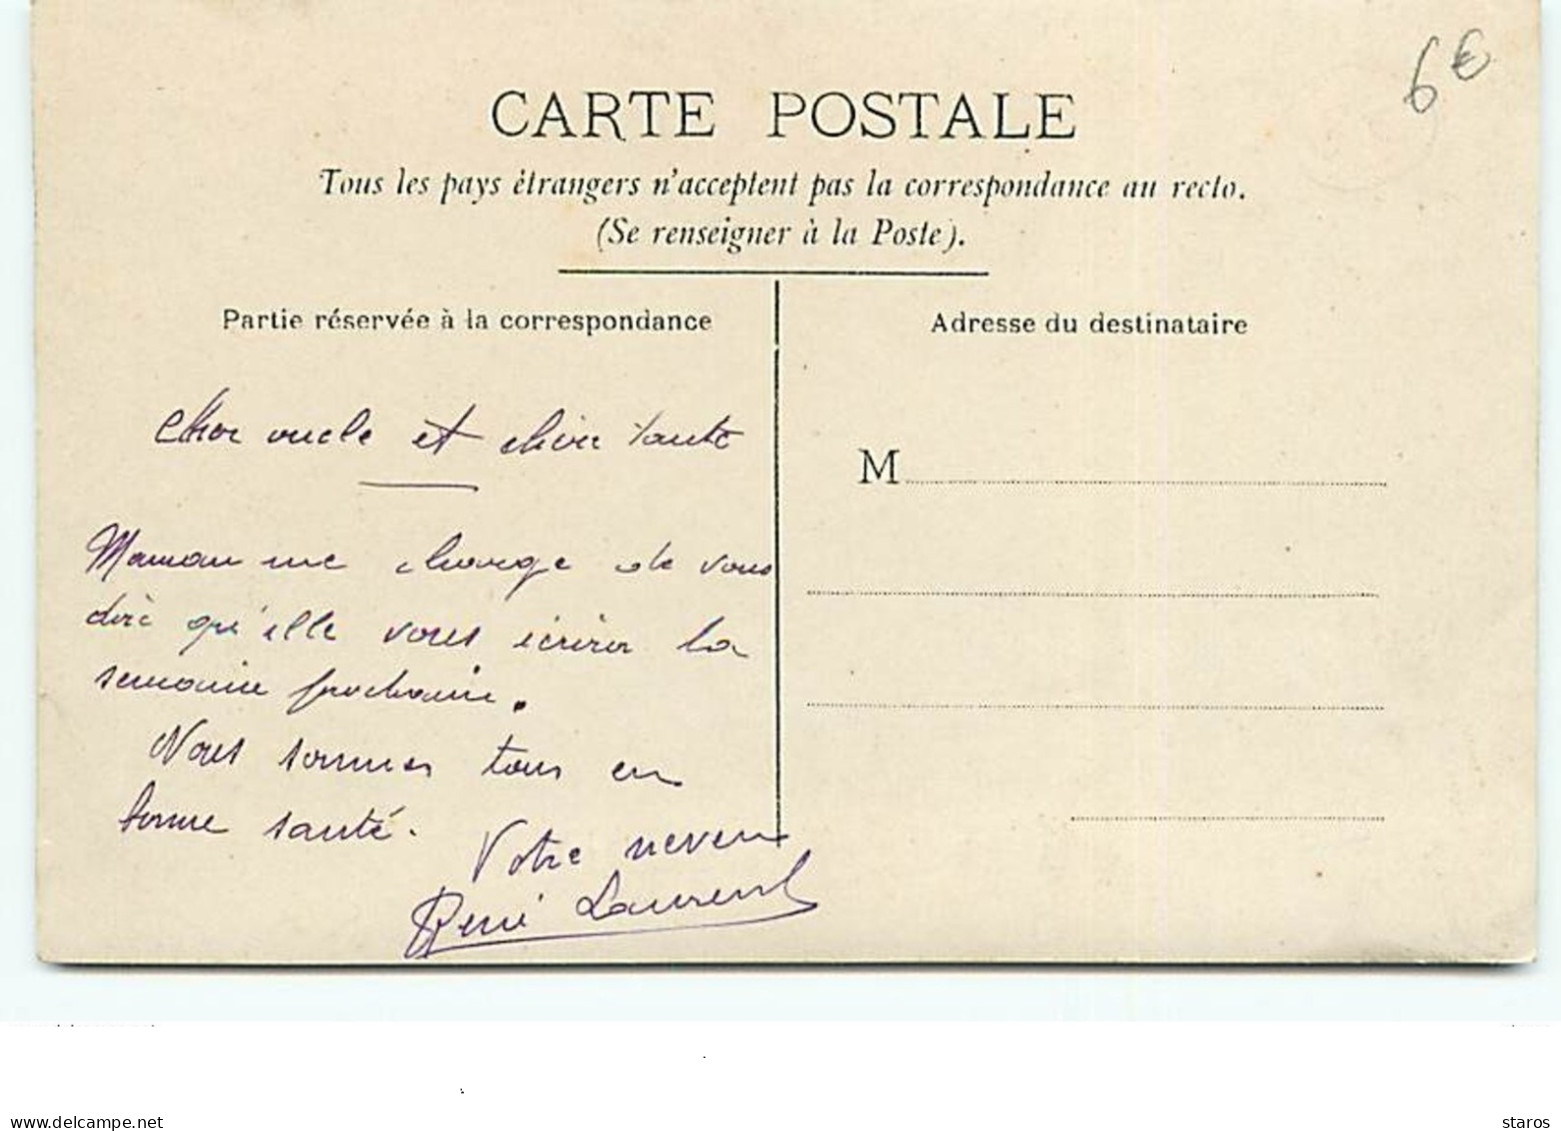 6€
CARTE POSTALE
Tous les pays étrangers n'acceptent pas la correspondance au recto.
(Se renseigner à la Poste).
Partie réservée à la correspondance
Cher oncle et chère tante
Maman me charge de vous
dire qu'elle vous écrira la
semaine prochaine.
Nous sommes tous en
bonne santé.
Votre neveu
René Laurent
Adresse du destinataire
M
www.delcampe.net
staros